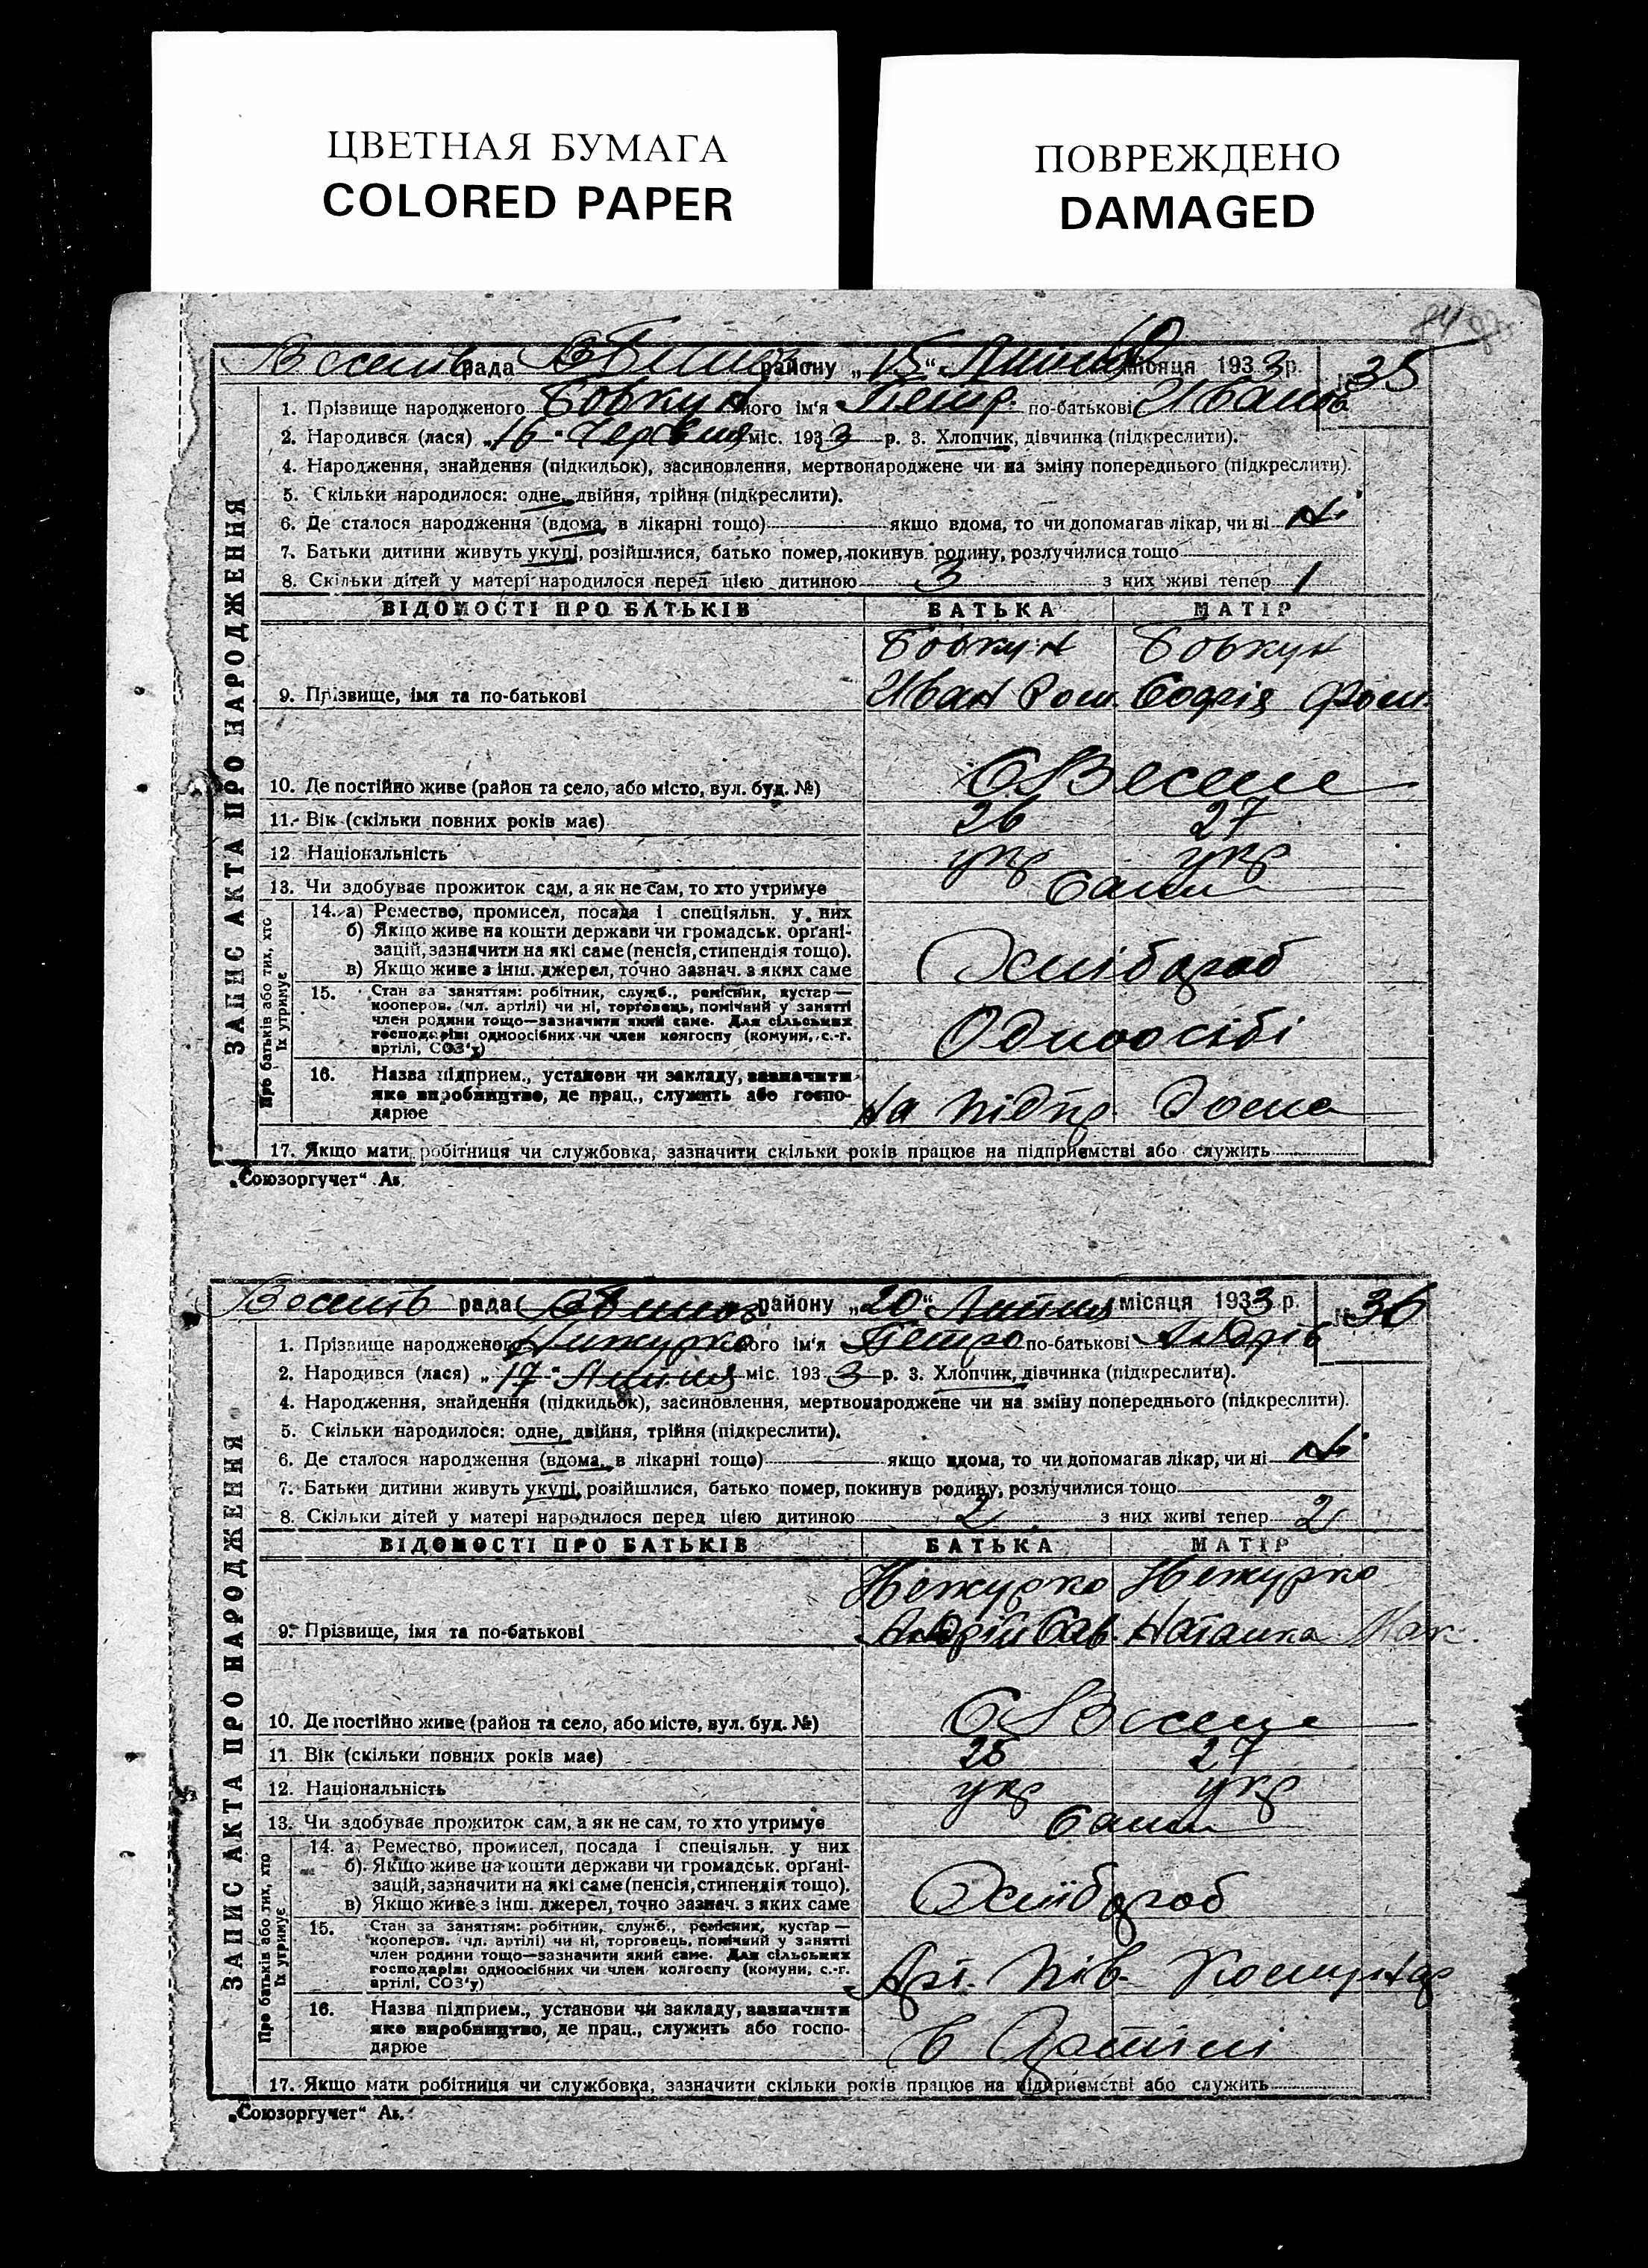 ЦВЕТНАЯ БУМАГА
COLORED PAPER
ПОВРЕЖДЕНО
DAMAGED
ЗАПИС АКТА ПРО НАРОДЖЕННЯ
рада району „15“ Липня місяця 1933 р. № 35
1. Прізвище народженого Бовкун його ім'я Петр. по-батькові Иванов
2. Народився (лася) „16“ Червня міс. 1933 р. 3. Хлопчик, дівчинка (підкреслити).
4. Народження, знайдення (підкидьок), засиновлення, мертвонароджене чи на зміну попереднього (підкреслити).
5. Скільки народилося: одне, двійня, трійня (підкреслити).
6. Де сталося народження (вдома, в лікарні тощо) якщо вдома, то чи допомагав лікар, чи ні Ні
7. Батьки дитини живуть укупі, розійшлися, батько помер, покинув родину, розлучилися тощо
8. Скільки дітей у матері народилося перед цією дитиною 3 з них живі тепер 1
ВІДОМОСТІ ПРО БАТЬКІВ БАТЬКА МАТІР
Бовкун Бовкун
9. Прізвище, імя та по-батькові Иван Ром. Софія Фом.
10. Де постійно живе (район та село, або місто, вул. буд. №) С Веселе
11. Вік (скільки повних років має) 26 27
12. Національність укр укр
13. Чи здобуває прожиток сам, а як не сам, то хто утримує Сами
Про батьків або тих, хто їх утримує
14. а) Ремество, промисел, посада і спеціяльн. у них
б) Якщо живе на кошти держави чи громадськ. органі-
зацій, зазначити на які саме (пенсія, стипендія тощо).
в) Якщо живе з інш. джерел, точно зазнач. з яких саме
15. Стан за заняттям: робітник, служб., ремісник, кустар—
кооперов. (чл. артілі) чи ні, торговець, помічний у занятті
член родини тощо—зазначити який саме. Для сільських
господарів: одноосібних чи член колгоспу (комуни, с.-г.
артілі, СОЗ'у) Одноосібі
16. Назва підприєм., установи чи закладу, зазначити
яке виробництво, де прац., служить або госпо-
дарює
17. Якщо мати робітниця чи службовка, зазначити скільки років працює на підприємстві або служить
„Союзоргучет“ Ах.
ЗАПИС АКТА ПРО НАРОДЖЕННЯ
рада району „20“ Липня місяця 1933 р. № 36
1. Прізвище народженого його ім'я Петро по-батькові Андрів
2. Народився (лася) „17“ Липня міс. 1933 р. 3. Хлопчик, дівчинка (підкреслити).
4. Народження, знайдення (підкидьок), засиновлення, мертвонароджене чи на зміну попереднього (підкреслити).
5. Скільки народилося: одне, двійня, трійня (підкреслити).
6. Де сталося народження (вдома, в лікарні тощо) якщо вдома, то чи допомагав лікар, чи ні Ні
7. Батьки дитини живуть укупі, розійшлися, батько помер, покинув родину, розлучилися тощо
8. Скільки дітей у матері народилося перед цією дитиною 2 з них живі тепер 2
ВІДОМОСТІ ПРО БАТЬКІВ БАТЬКА МАТІР
Нежурко Нежурко
9. Прізвище, імя та по-батькові Андрій Сав. Наталка Мак.
10. Де постійно живе (район та село, або місто, вул. буд. №) С Веселе
11. Вік (скільки повних років має) 25 27
12. Національність укр укр
13. Чи здобуває прожиток сам, а як не сам, то хто утримує Сами
Про батьків або тих, хто їх утримує
14. а) Ремество, промисел, посада і спеціяльн. у них
б) Якщо живе на кошти держави чи громадськ. органі-
зацій, зазначити на які саме (пенсія, стипендія тощо).
в) Якщо живе з інш. джерел, точно зазнач. з яких саме
15. Стан за заняттям: робітник, служб., ремісник, кустар—
кооперов. (чл. артілі) чи ні, торговець, помічний у занятті
член родини тощо—зазначити який саме. Для сільських
господарів: одноосібних чи член колгоспу (комуни, с.-г.
артілі, СОЗ'у) Арт.
16. Назва підприєм., установи чи закладу, зазначити
яке виробництво, де прац., служить або госпо-
дарює в Артілі
17. Якщо мати робітниця чи службовка, зазначити скільки років працює на підприємстві або служить
„Союзоргучет“ Ах.